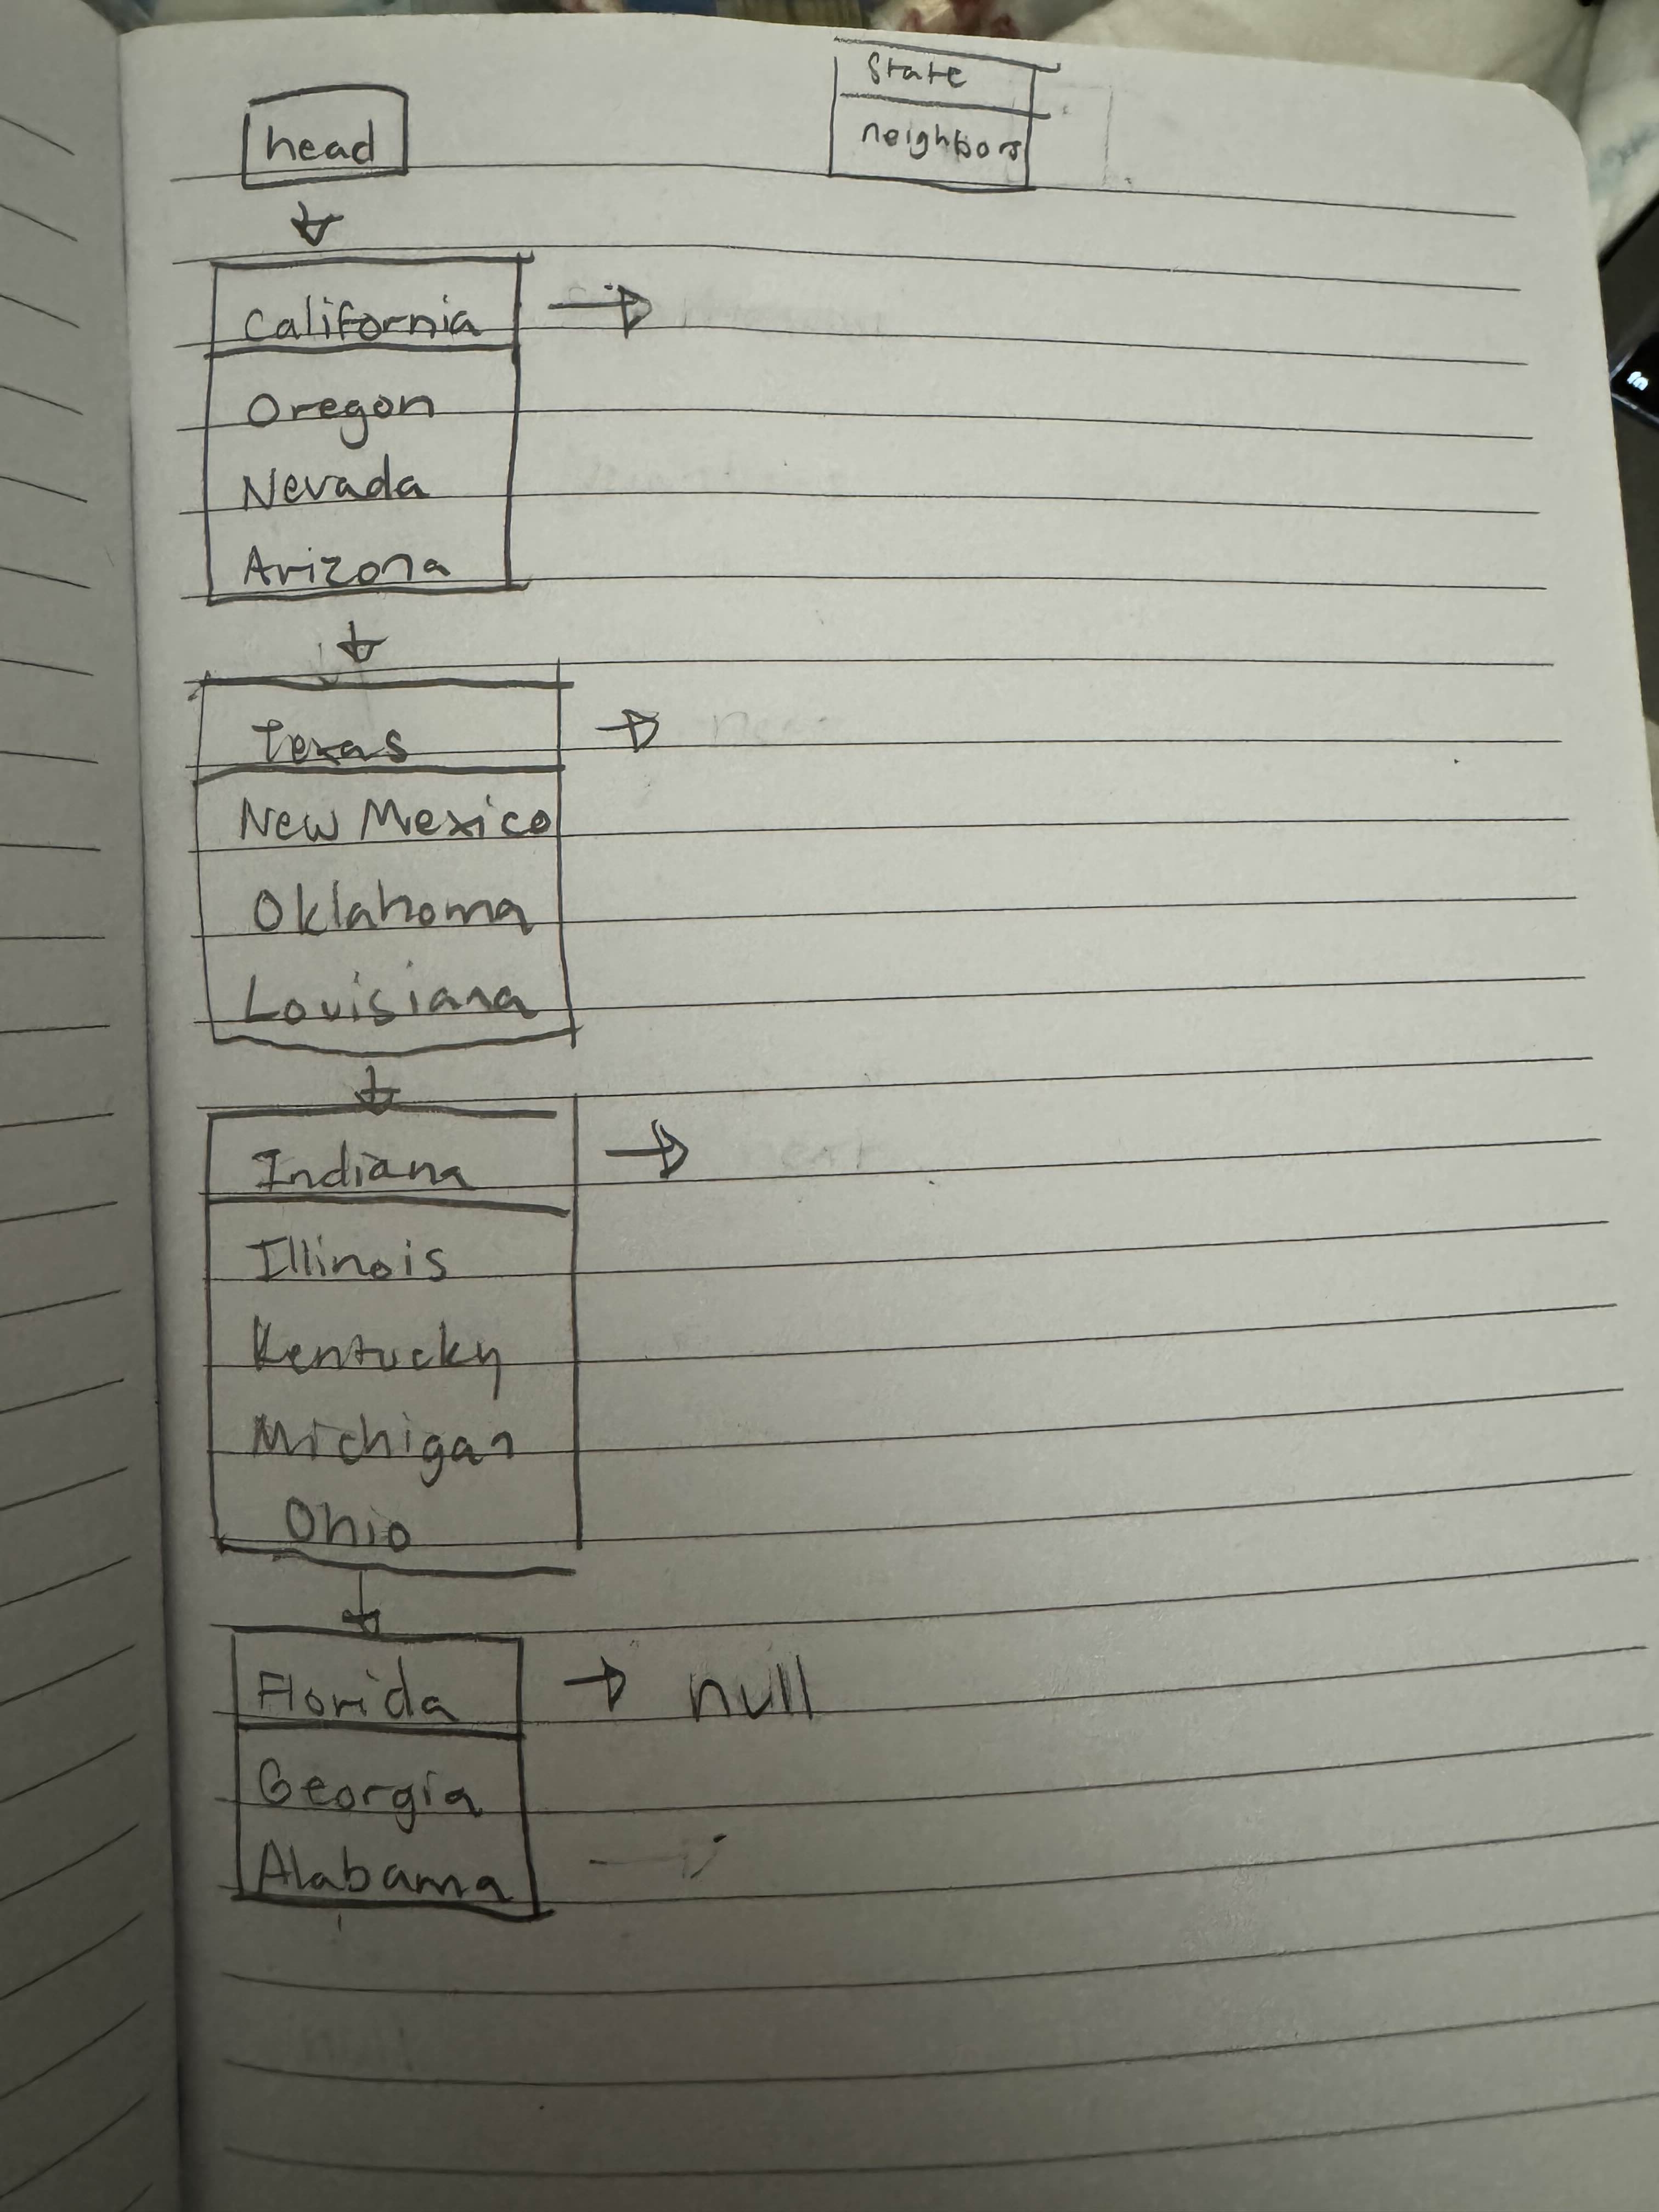 head
State
neighbors
California
Oregon
Nevada
Arizona
Texas
New Mexico
Oklahoma
Louisiana
Indiana
Illinois
Kentucky
Michigan
Ohio
Florida → null
Georgia
Alabama